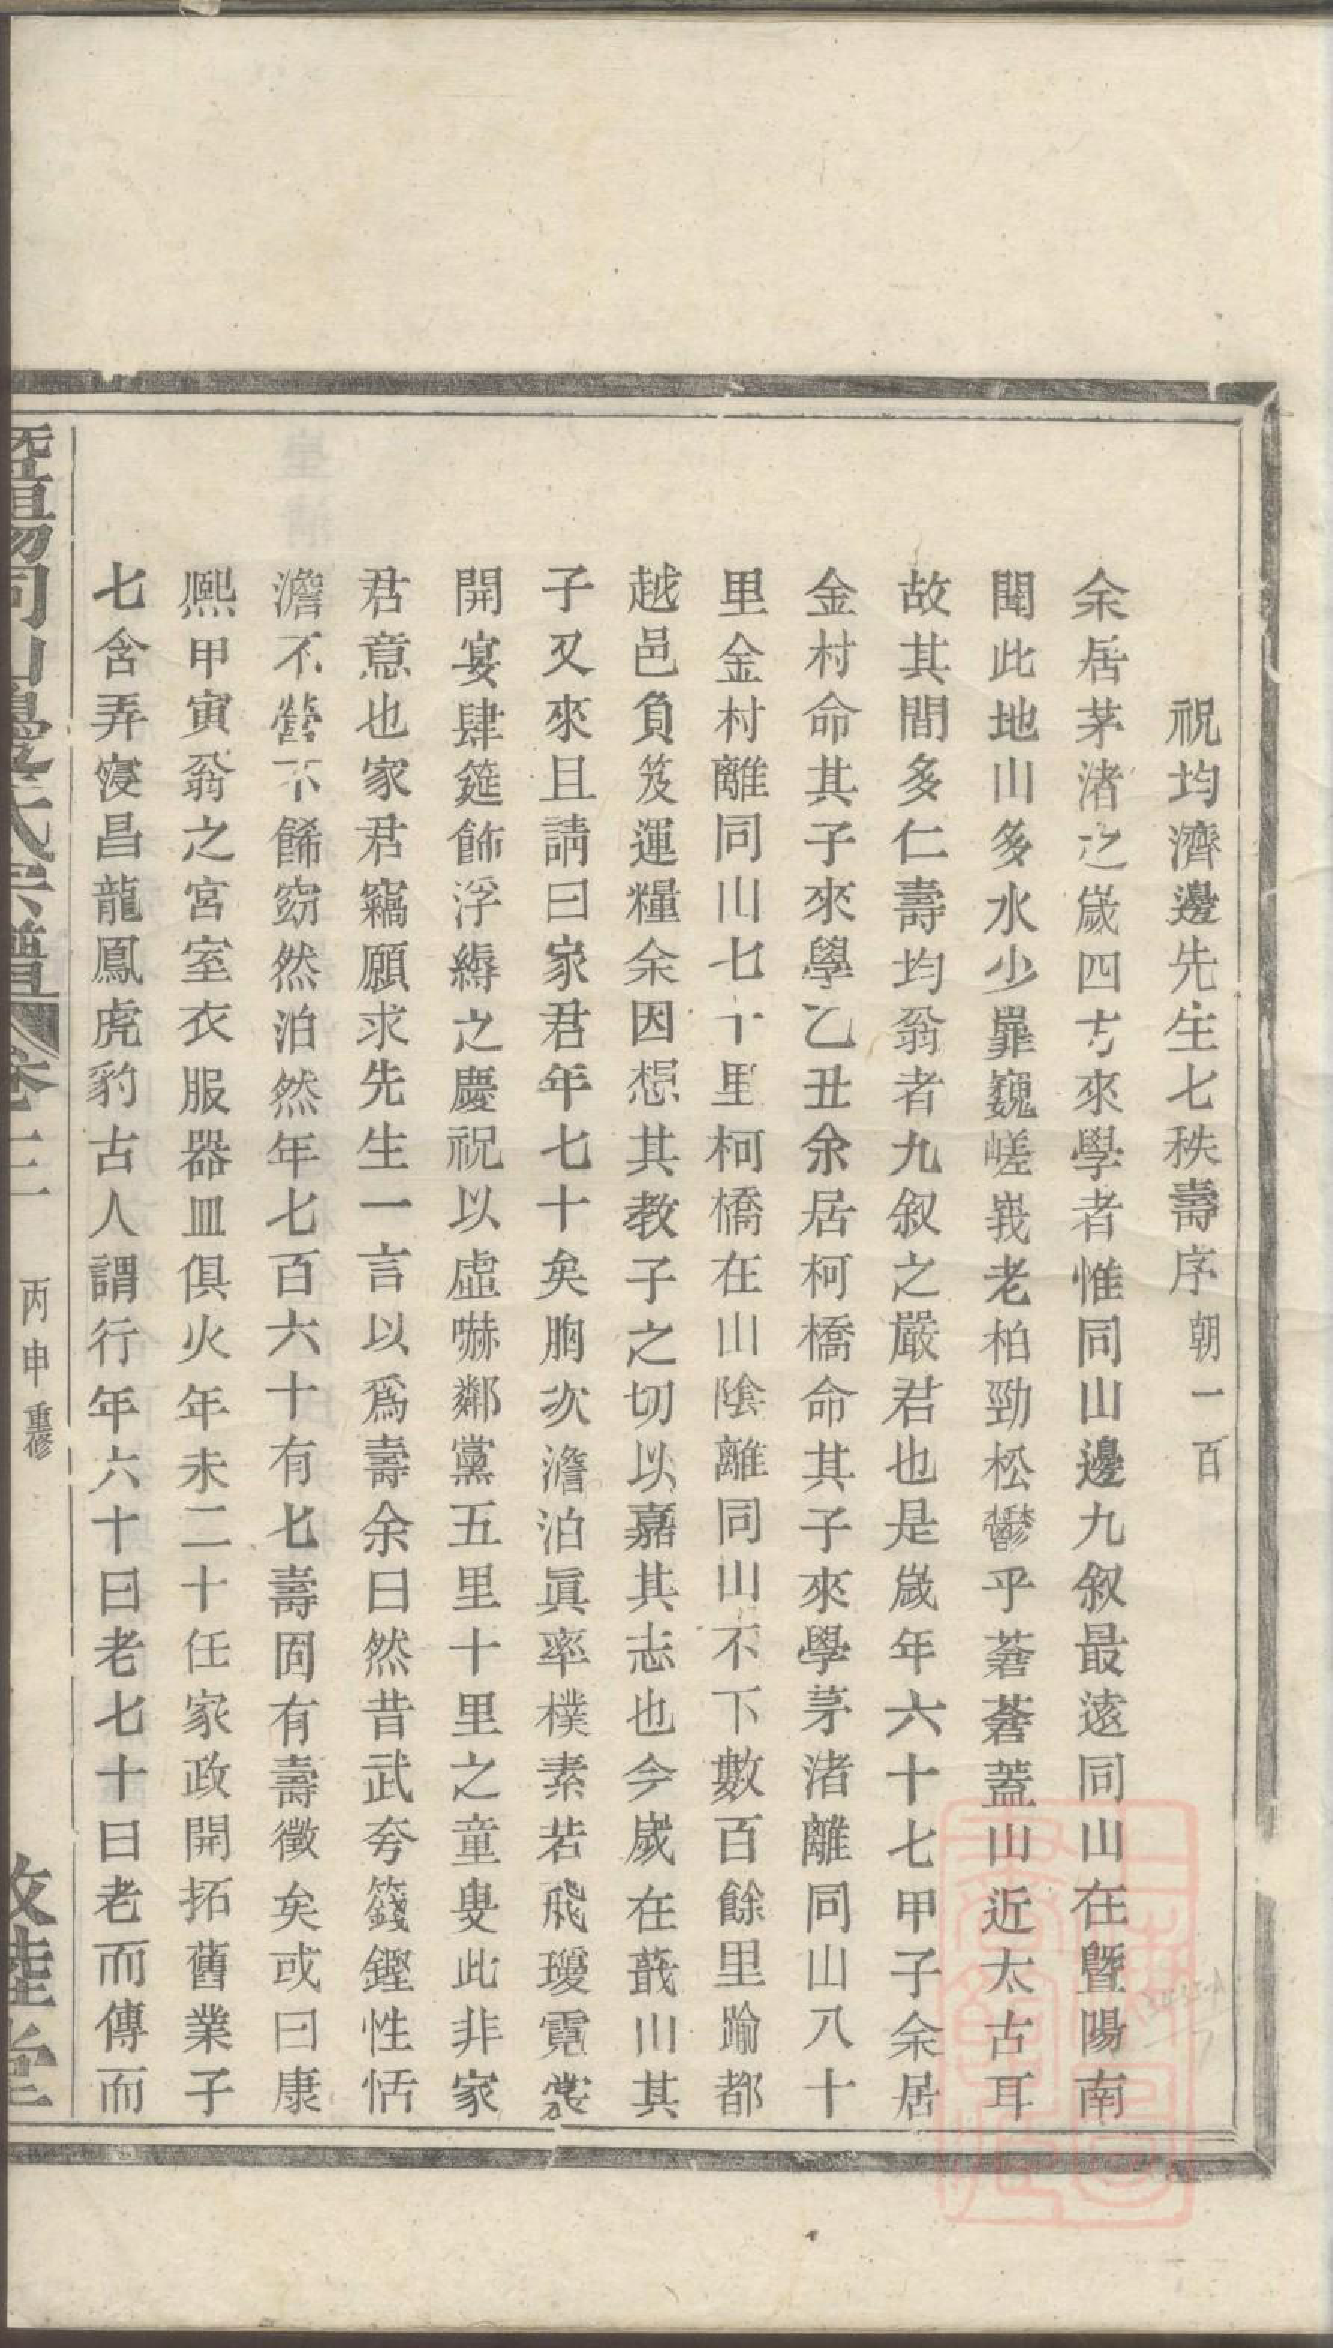 祝均濟邊先生七秩壽序 朝一百
余居茅渚之嵗四方來學者惟同山邊九叙最遠同山在曁陽南
聞此地山多水少巃巍嵯峩老柏勁松鬱乎蒼蒼蓋山近太古耳
故其間多仁壽均翁者九叙之嚴君也是嵗年六十七甲子余居
金村命其子來學乙丑余居柯橋命其子來學茅渚離同山八十
里金村離同山七十里柯橋在山陰離同山不下數百餘里踰都
越邑負笈運糧余因想其教子之切以嘉其志也今嵗在蕺山其
子又來且請曰家君年七十矣胸次澹泊眞率樸素若飛瓊霓裳
開宴肆筵飾浮縟之慶祝以虛嚇鄰黨五里十里之童叟此非家
君意也家君竊願求先生一言以爲壽余曰然昔武夸籛鏗性恬
澹不營不餙窈然泊然年七百六十有七壽固有壽徵矣或曰康
熙甲寅翁之宮室衣服器皿俱火年未二十任家政開拓舊業子
七含弄寖昌龍鳳虎豹古人謂行年六十曰老七十曰老而傳而
曁陽同山邊氏宗譜 卷二 丙申重修 敦睦堂